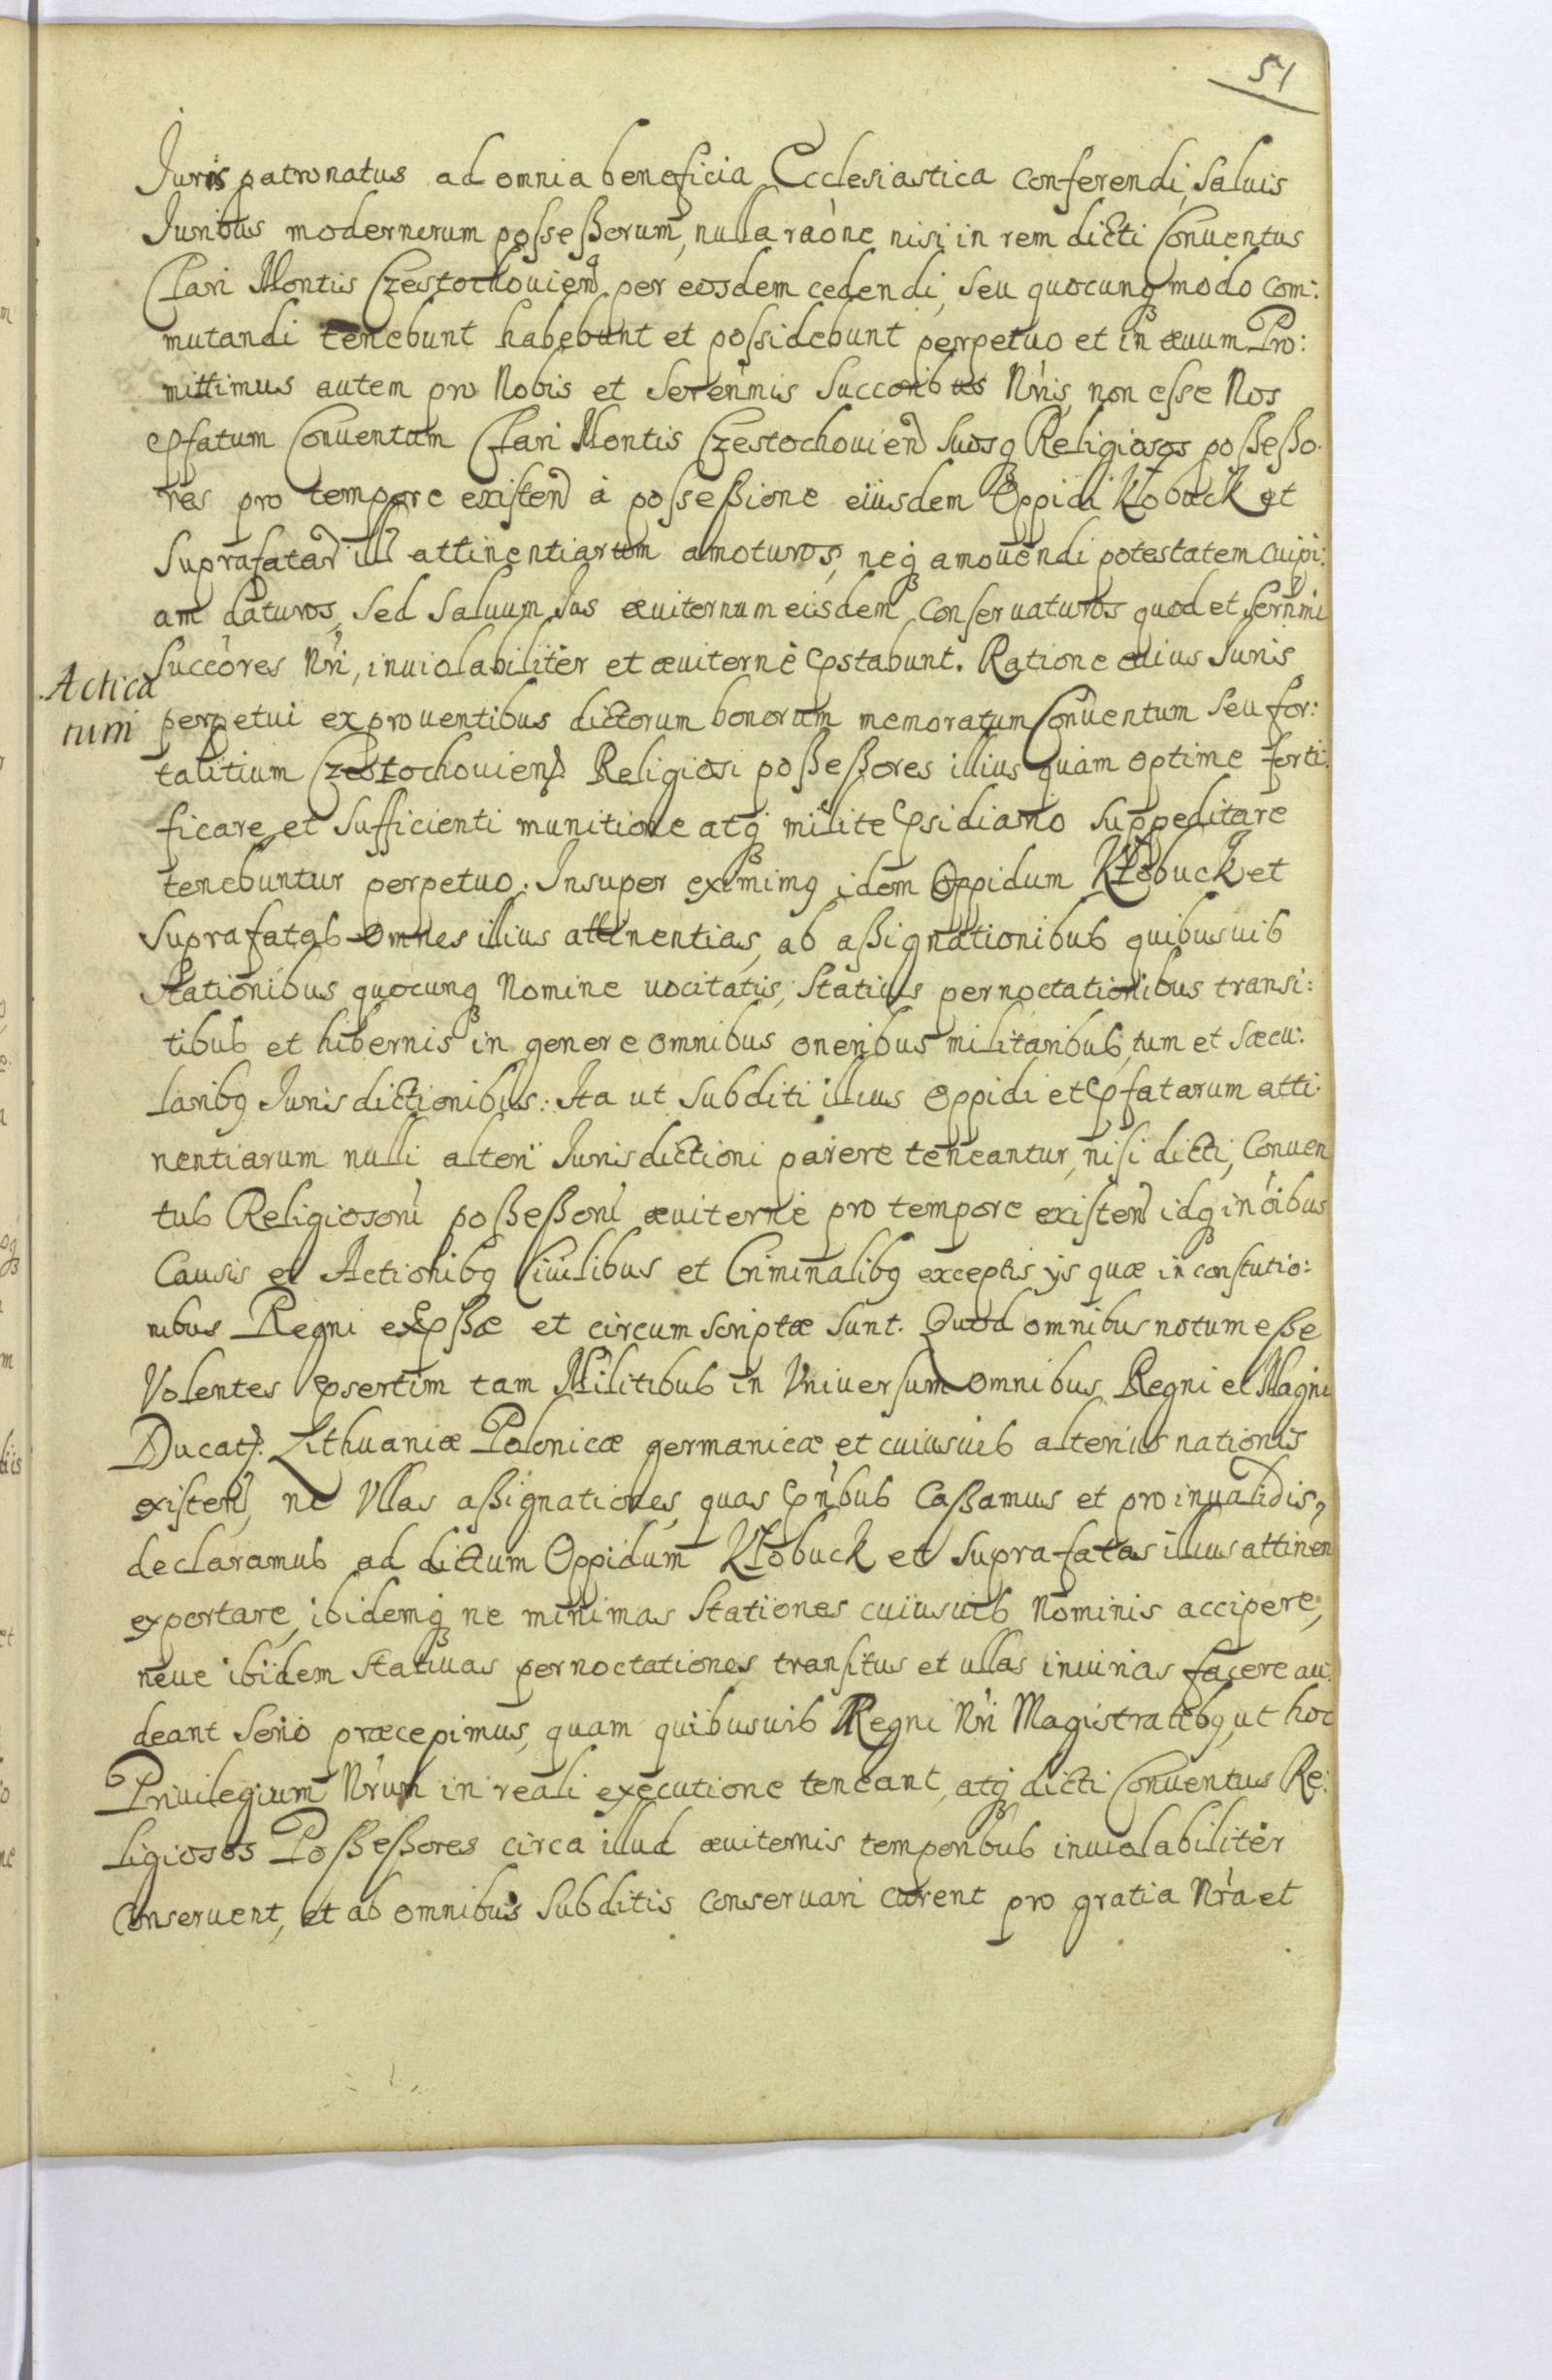 51
Juris patronatus ad omnia beneficia Ecclesiastica conferendi, Saluis
Juribus modernorum possessorum, nulla raone nisi in rem dicti Conuentus
Clari Montis Czestochouien per eosdem cedendi, seu quocunq modo com:
mutandi tenebunt habebunt et possidebunt perpetuo et in æuum Pro:
mittimus autem pro Nobis et Serenmis Succoribus Nris, non esse Nos
pfatum Conuentum Clari Montis Czestochouien Suosq Religiosos possesso:
res pro tempore existen à possessione eiusdem Oppidi Kłobuck et
Suprafatar ill attinentiarum amoturos, neq amouendi potestatem cuipi:
am daturos, Sed Saluum Jus æuiternum eisdem conseruaturos quod et Sernmi
Succores Nri, inuiolabiliter et æuiternè pstabunt. Ratione cuius Juris
Actica
tum
perpetui ex prouentibus dictorum bonorum memoratum Conuentum Seu for:
talitium Czestochouien Religiosi possessores illius quàm optime forti:
ficare et Sufficienti munitione atq milite psidiario Suppeditare
tenebuntur perpetuo. Insuper eximimq idem Oppidum Kłobuck et
Suprafatas omnes illius attinentias, ab assignationibus quibusuis
Stationibus quocunq Nomine uocitatis, Statiuis pernoctationibus transi:
tibus et hibernis in genere omnibus oneribus militaribus, tum et sæcu:
laribq Jurisdictionibus: Ita ut Subditi illius Oppidi et pfatarum atti:
nentiarum nulli alteri Jurisdictioni parere teneantur, nisi dicti, Conuen
tus Religiosorù possessorù æuiternè pro tempore existen idq in oibus
Causis et Actionibq Ciuilibus et Criminalibq exceptis ijs quæ in constutio:
nibus Regni expssæ et circumscriptæ sunt. Quod omnibus notum esse
Volentes psertim tam Militibus in Vniuersum omnibus Regni et Magni
Ducat: Lithuaniæ Polonicæ germanicæ et cuiusuis alterius nationis
existen, ne Vllas assignationes, quas pntibus Cassamus et pro inualidis,
declaramus ad dictum Oppidum Kłobuck et Suprafatas illius attinen
exportare, ibidemq ne minimas Stationes cuiusuis Nominis accipere,
neue ibidem Statiuas pernoctationes transitus et ullas iniurias facere au:
deant Serio præcepimus, quam quibusuis Regni Nri Magistratibq, ut hoc
Priuilegium Nrum in reali executione teneant, atq dicti Conuentus Re:
ligiosos Possessores circa illud æuiternis temporibus inuiolabiliter
Conseruent, et ab omnibus Subditis conseruari curent pro gratia Nra et